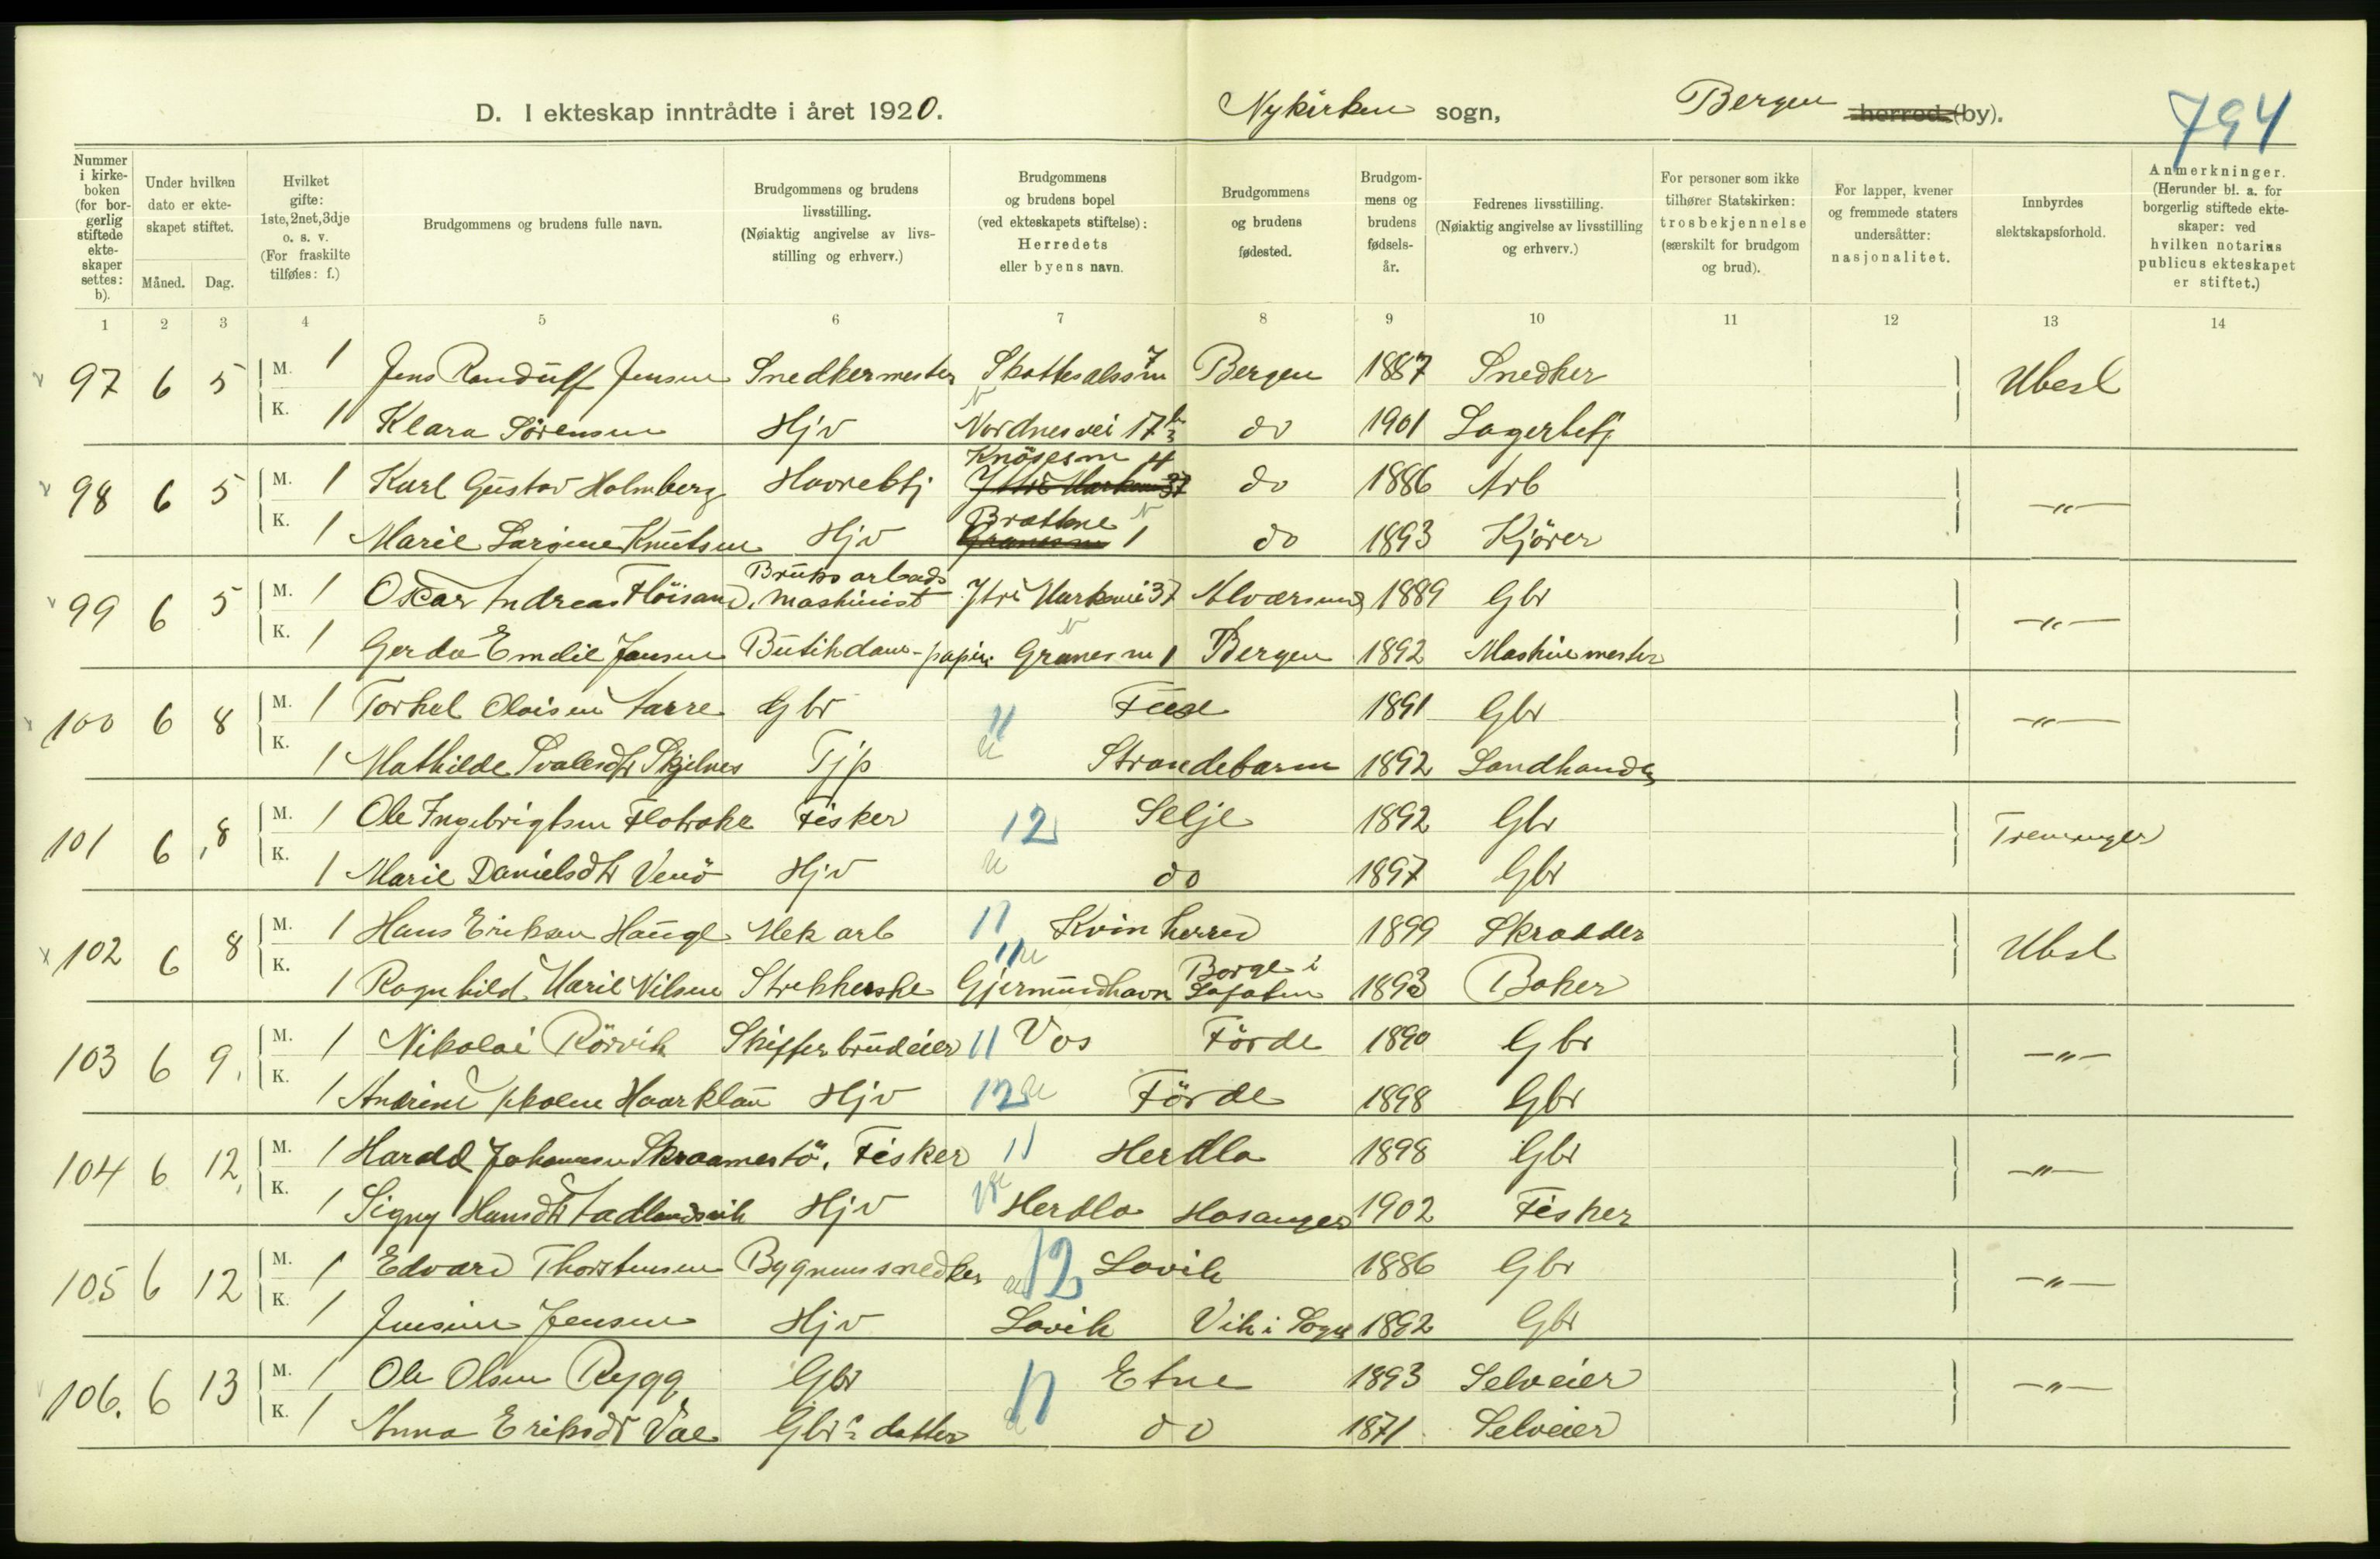 D. I ekteskap inntrådte i året 1920. Nykirken sogn, Bergen herred (by). 794
Nummer i kirkeboken (for borgerlig stiftede ekteskaper settes: b).
Under hvilken dato er ekteskapet stiftet.
Måned. Dag.
Hvilket gifte: 1ste, 2net, 3dje o. s. v. (For fraskilte tilføies: f.)
Brudgommens og brudens fulle navn.
Brudgommens og brudens livsstilling. (Nøiaktig angivelse av livsstilling og erhverv.)
Brudgommens og brudens bopel (ved ekteskapets stiftelse): Herredets eller byens navn.
Brudgommens og brudens fødested.
Brudgommens og brudens fødselsår.
Fedrenes livsstilling. (Nøiaktig angivelse av livsstilling og erhverv.)
For personer som ikke tilhører Statskirken: trosbekjennelse (særskilt for brudgom og brud).
For lapper, kvener og fremmede staters undersåtter: nasjonalitet.
Innbyrdes slektskapsforhold.
Anmerkninger. (Herunder bl. a. for borgerlig stiftede ekteskaper: ved hvilken notarius publicus ekteskapet er stiftet.)
1 2 3 4 5 6 7 8 9 10 11 12 13 14
97 6 5 M. 1 Jens Randulff Jensen Snedkermester 7 Bergen 1887 Snedker Ubesl
K. 1 Klara Sörensen Hjv Nordnesvei 17 do 1901 Lagerbetj
98 6 5 M. 1 Karl Gustav Holmberg Havnebtj Knösesm 4 Ytre Markevei 37 do 1886 Arb -"-
K. 1 Marie Sargine Knutsen Hjv Brattene Granesm 1 do 1893 Kjörer
99 6 5 M. 1 Oscar Andreas Flöisand, Bruksarbeids maskinist Ytre Markevei 37 Alværsund 1889 Gbr -"-
K. 1 Gerda Emelie Jansen Butikdame-papir Granesm 1 Bergen 1892 Maskinmester
100 6 8 M. 1 Torkel Olaisen Aarre Gbr 11 Fuse 1891 Gbr -"-
K. 1 Mathilde Skjelnes Tjp Strandebarm 1892 Landhandler
101 6 8 M. 1 Ole Ingebrigtsen Flatrake Fisker 12 Selje 1892 Gbr Tremenger
K. 1 Marie Danielsdtr Venö Hjv do 1897 Gbr
102 6 8 M. 1 Hans Eriksen Hauge Mek arb 11 Kvinherred 1899 Skrædder Ubsl
K. 1 Ragnhild Marie Nilsen Strekkerske 11 Gjermundhavn Borge i Lofoten 1893 Baker
103 6 9. M. 1 Nikolai Rörvik Skiferbrudeier 11 Vos Förde 1890 Gbr -"-
K. 1 Andrine Haarklau Hjv 12 Förde 1898 Gbr
104 6 12, M. 1 Harald Johannesen Skraamestö. Fisker 11 Herdla 1898 Gbr -"-
K. 1 Signy Hansdtr Aadlandsvik Hjv Herdla Hosanger 1902 Fisker
105 6 12 M. 1 Edvard Thorstensen Bygnungssnedker 12 Lavik 1886 Gbr -"-
K. 1 Jensine Jensen Hjv Lavik Vik i Sogn 1892 Gbr
106. 6 13 M. 1 Ole Olsen Rygg Gbr 11 Etne 1893 Selveier -"-
K. 1 Anna Eriksdtr Vae Gbrs datter do 1871 Selveier